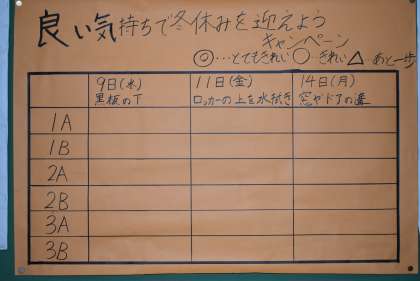 良い気持ちで冬休みを迎えよう
キャンペーン
◎…とてもきれい ○…きれい △ あと一歩
9日(水) 11日(金) 14日(月)
黒板の下 ロッカーの上を水拭き 窓やドアの溝
1A
1B
2A
2B
3A
3B